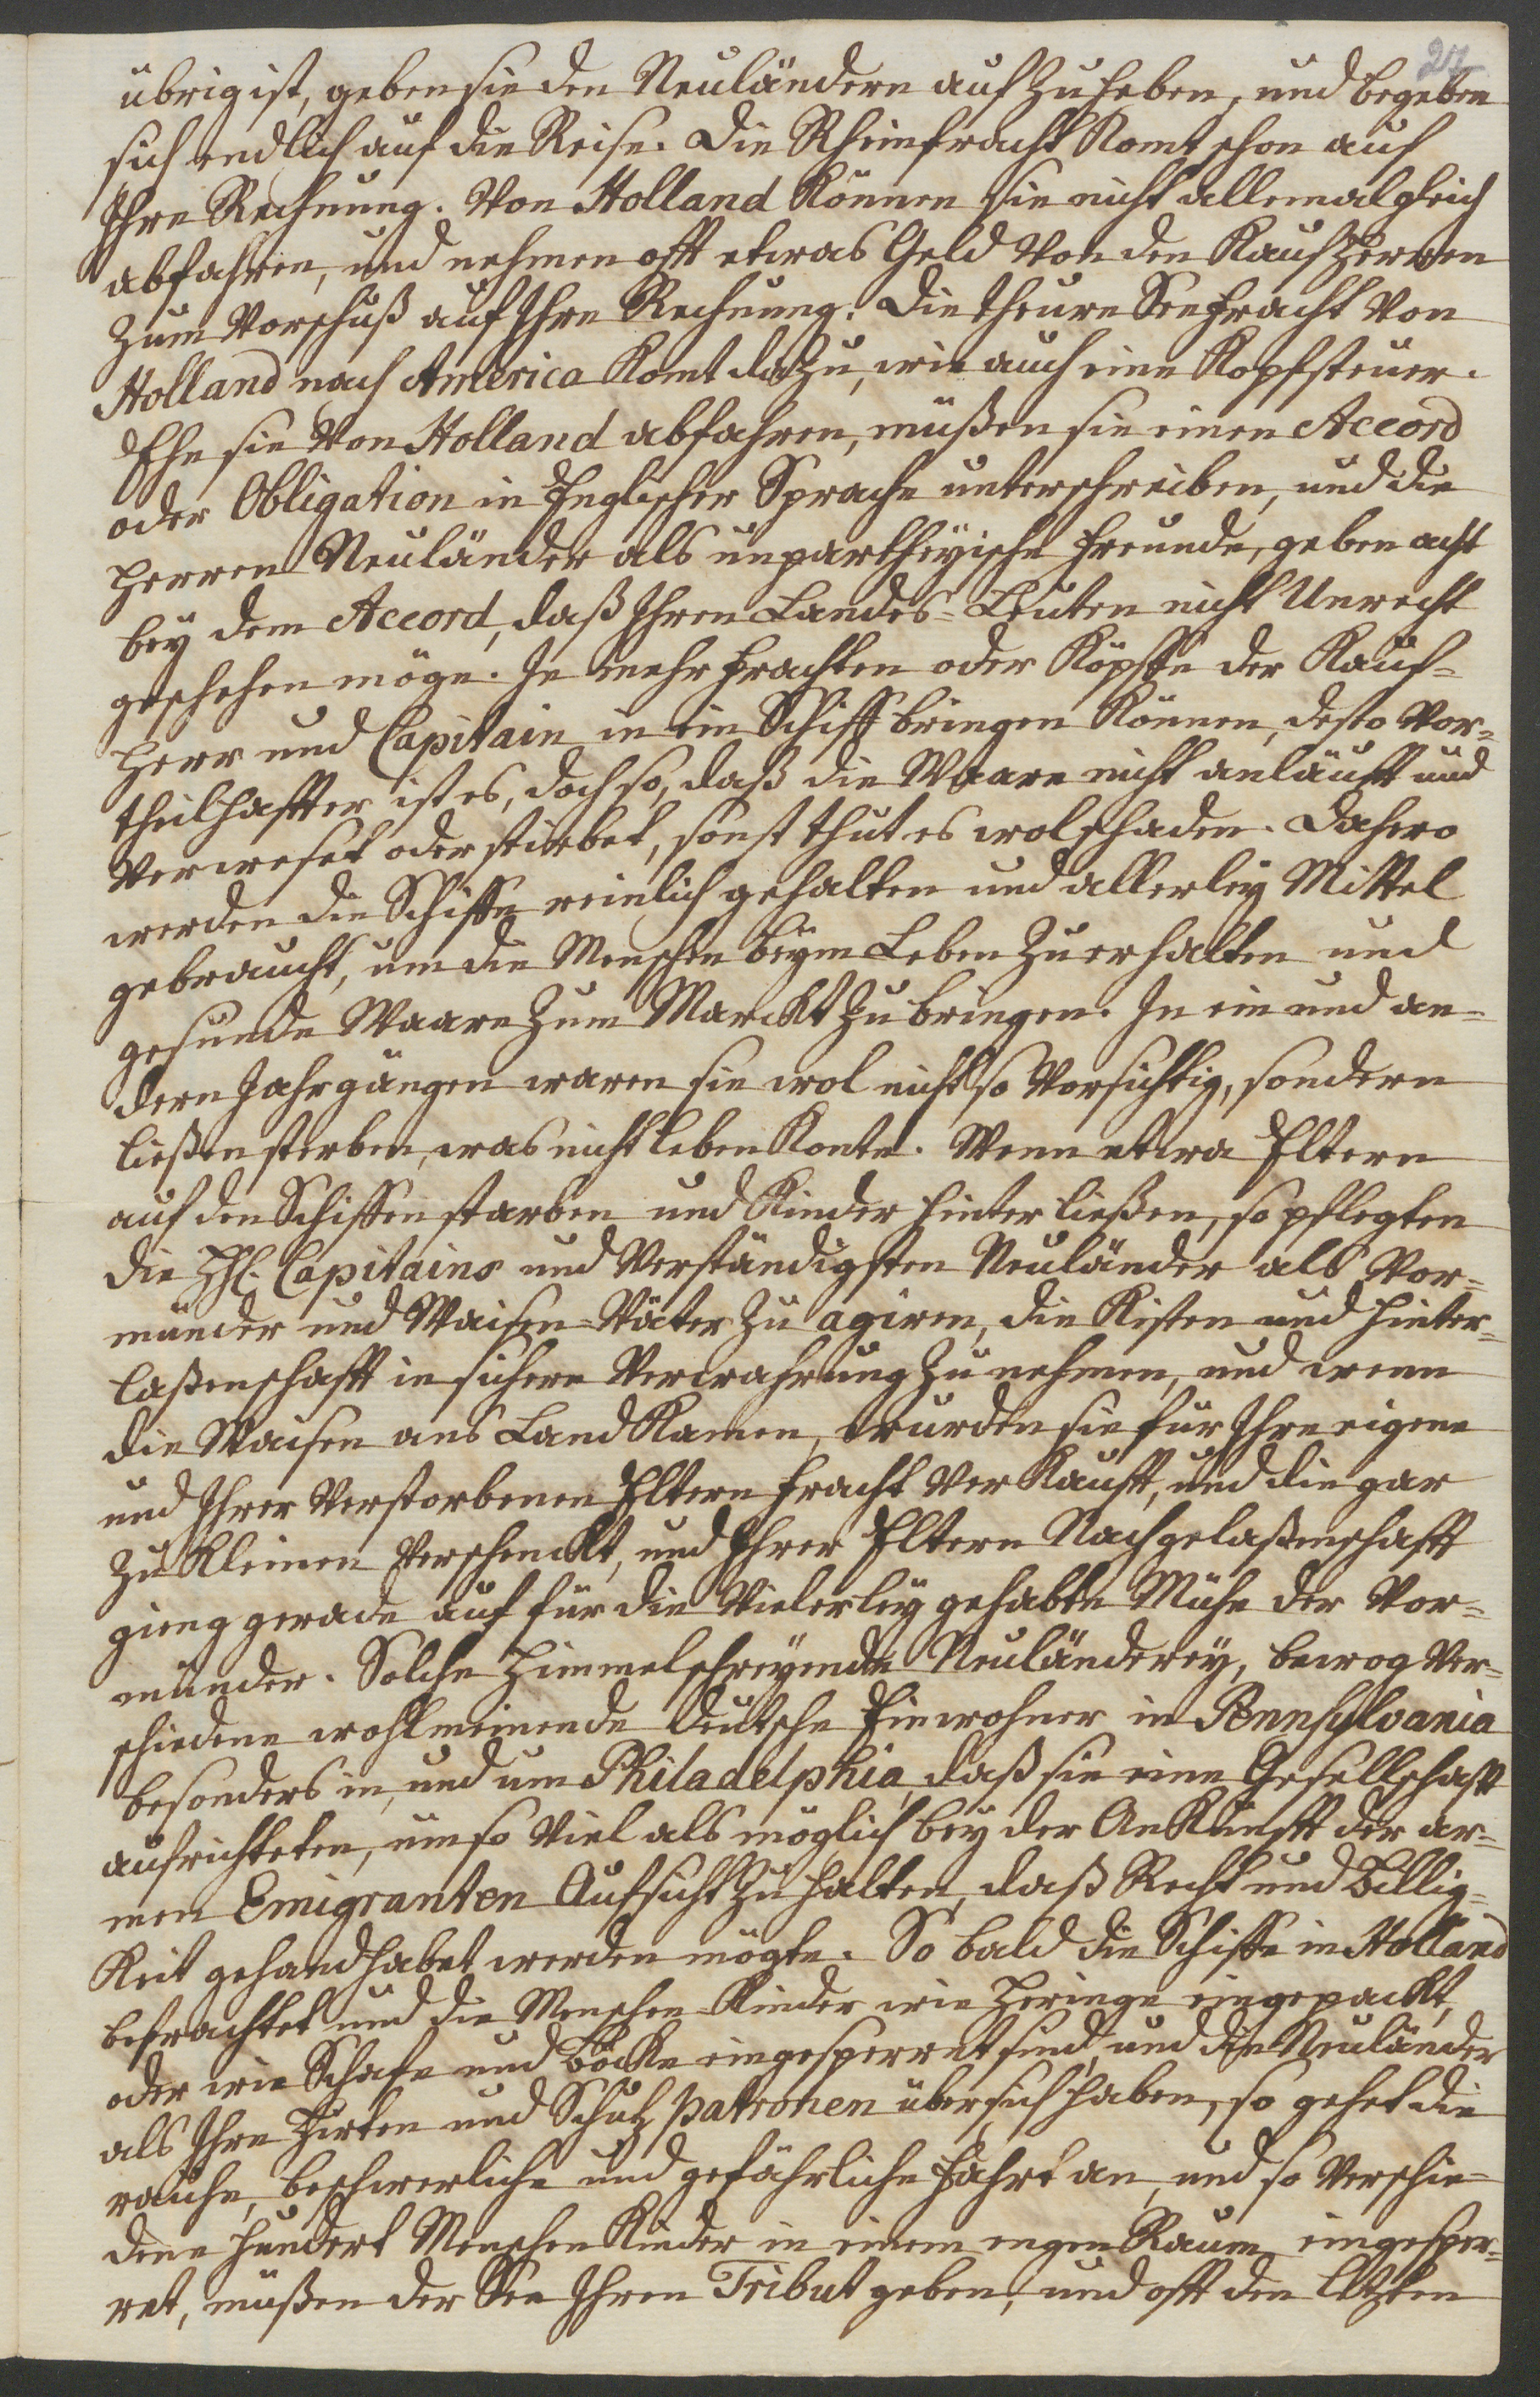 übrig ist, geben sie den Neuländern aufzuheben, und begeben
sich endlich auf die Reise. Die Rheinfracht Komt schon auf
Ihre Rechnung. Von Holland Können sie nicht allemal gleich
abfahren, und nehmen offt etwas Geld von den Kauf Herren
zum Vorschuß auf Ihre Rechnung. Die theure Seefracht von
Holland nach America Komt dazu, wie auch eine Kopfsteuer.
Ehe sie von Holland abfahren, müßen sie einen Accord
oder Obligation in Englischer Sprache unterschreiben, und die
Herren Neuländer als unpartheyische Freunde, geben acht
bey dem Accord, daß Ihren Landes-Leuten nicht Unrecht
geschehen möge. Je mehr Frachten oder Köpffe der Kauf-
Herr und Capitain in ein Schiff bringen Können, desto Vor-
theilhaffter ist es, doch so, daß die Waare nicht anläufft und
verweset oder stirbet, sonst thut es wol schaden. Dahero
werden die Schiffe reinlich gehalten und allerley Mittel
gebraucht, um die Menschen beym Leben zu erhalten und
gesunde Waare zum Marckt zu bringen. In ein und an-
dern Jahrgängen waren sie wol nicht so Vorsichtig, sondern
ließen sterben, was nicht leben Konte. Wenn etwa Eltern
auf den Schiffen starben und Kinder hinterließen, so pflegten
die HH. Capitains und Verständigsten Neuländer als Vor-
münder und Waisen-Väter zu agiren, die Kisten und Hinter-
laßenschafft in sichere Verwahrung zu nehmen, und wenn
die Waisen ans Land Kamen, wurden sie für Ihre eigene
und Ihrer Verstorbenen Eltern Fracht verKaufft, und die gar
zu Kleinen verschenckt, und Ihrer Eltern Nachgelaßenschafft
gieng gerade auf für die Vielerley gehabte Mühe der Vor-
münder. Solche Himmelschreyende Neuländerey, bewog Ver-
schiedene wohlmeinende deutsche Einwohner in Pennsylvania
besonders in, und um Philadelphia, daß sie eine Gesellschafft
aufrichteten, um so Viel als möglich bey der AnKunfft der ar-
men Emigranten Aufsicht zu halten, daß Recht und Billig-
Keit gehandhabet werden mögte. So bald die Schiffe in Holland
befrachtet und die Menschen-Kinder wie Heringe eingepackt,
oder wie Schafe und Böcke eingesperret sind, und die Neuländer
als Ihre Hirten und Schutz patronen über sich haben, so gehet die
rauhe, beschwerliche und gefährliche Fahrt an, und so verschie-
dene hundert Menschen Kinder in einem engen Raum eingesper-
ret, müßen der See Ihren Tribut geben, und offt den letzten